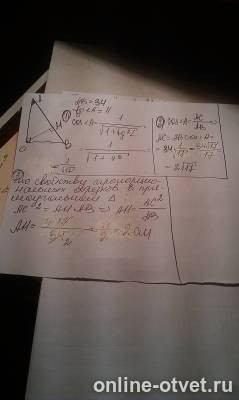 AB=34
tg<A=4
① cos<A=1/√1+tg²A=
=1/√1+4²
=1/√17
② cos<A=AC/AB
AC=AB·cos<A=
=34·1/√17=34√17/17
=2√17
③ по свойству пропорцио-
нальных отрезков в пря-
моугольном Δ
AC²=AH·AB ⇒ AH=AC²/AB
AH= =2 см
online-otvet.ru